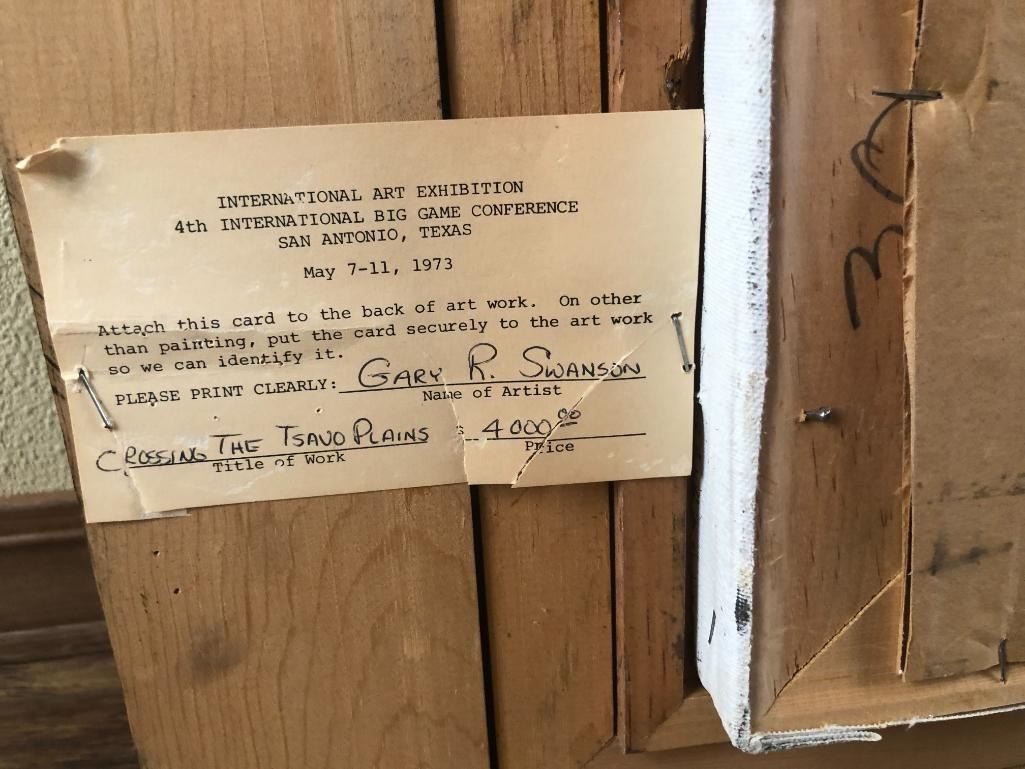 INTERNATIONAL ART EXHIBITION
4th INTERNATIONAL BIG GAME CONFERENCE
SAN ANTONIO, TEXAS
May 7-11, 1973
Attach this card to the back of art work. On other
than painting, put the card securely to the art work
so we can identify it.
PLEASE PRINT CLEARLY: GARY R. SWANSON
Name of Artist
CROSSING THE TSAVO PLAINS $ 4000.00
Title of Work Price